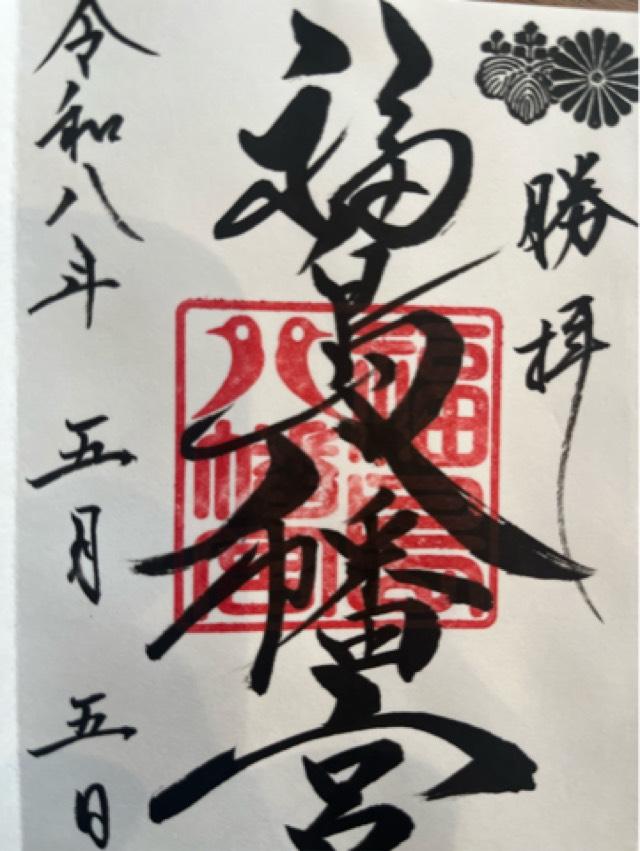 勝拝
福島八幡宮
福島
八幡宮
令和八年 五月 五日